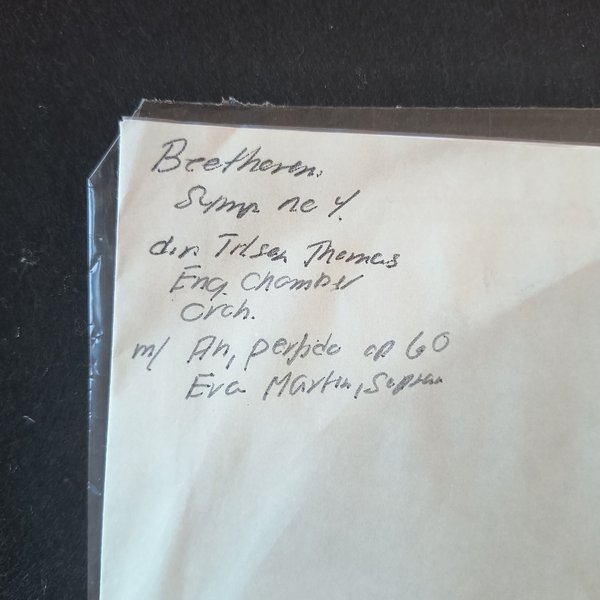 Beethoven.
Symp no 4.
dir. Tilson Thomas
Eng. Chamber
Orch.
m/ Ah, perfido op 60
Eva Martin, Sopran